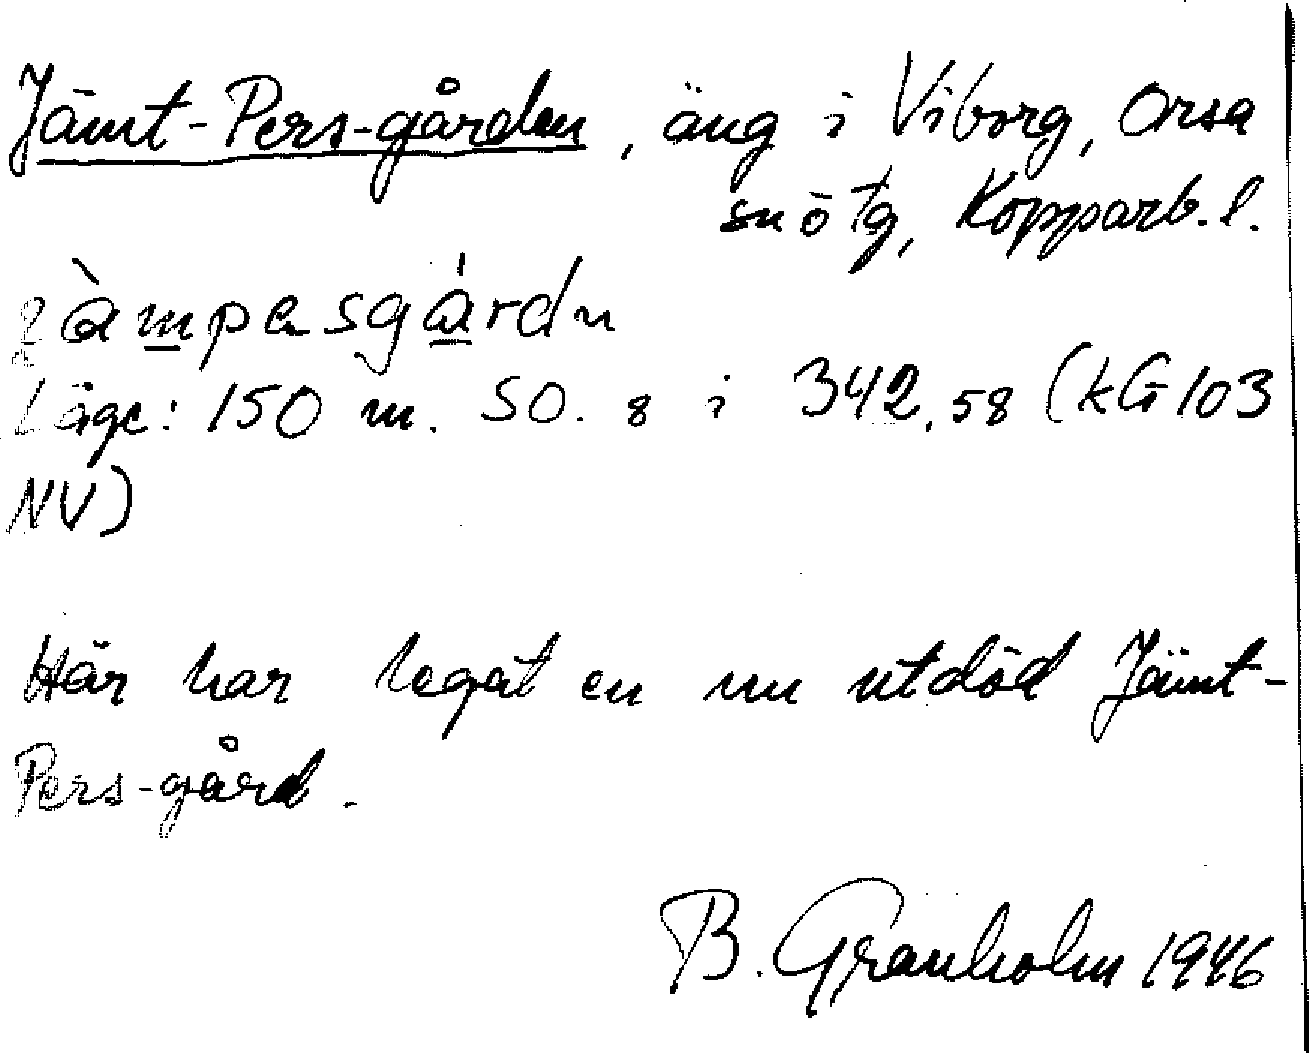 Jämt-Pers-gården, äng i Viborg, Orsa
sn o tg, Kopparb. l.
Läge: 150 m. SO. 8 i 342,58 (kG 103
NV)
Här har legat en nu utdöd Jämt-
Pers-gård.
B. Granholm 1946